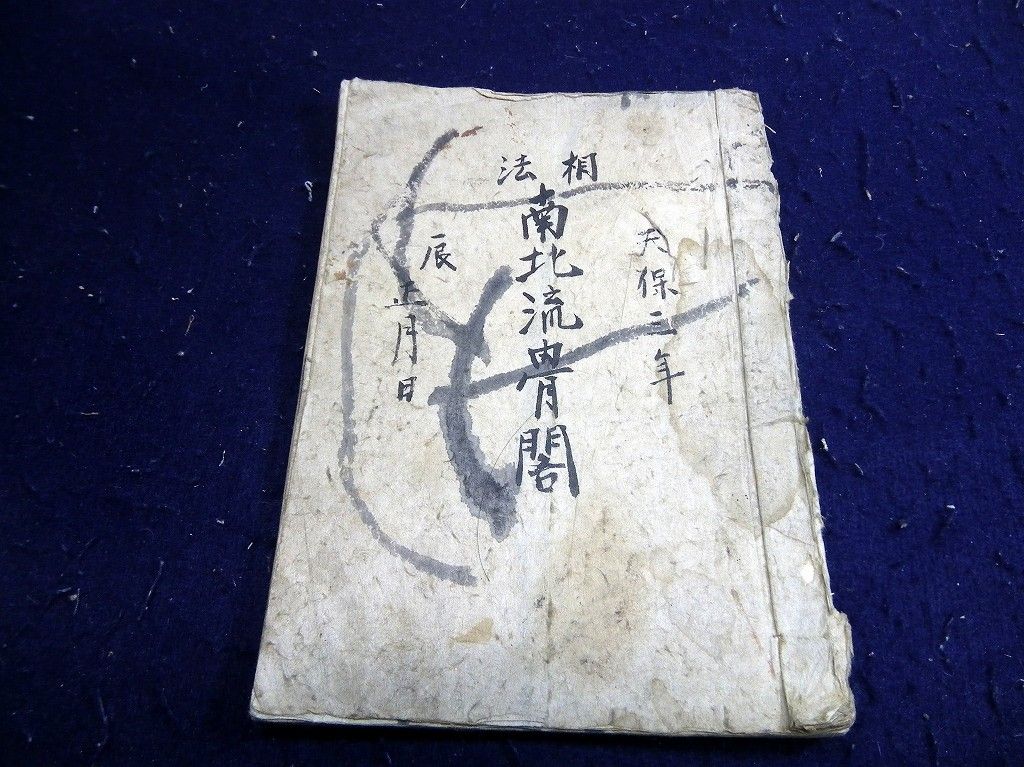 天保三年
相法
南北流骨閣
辰
正月日